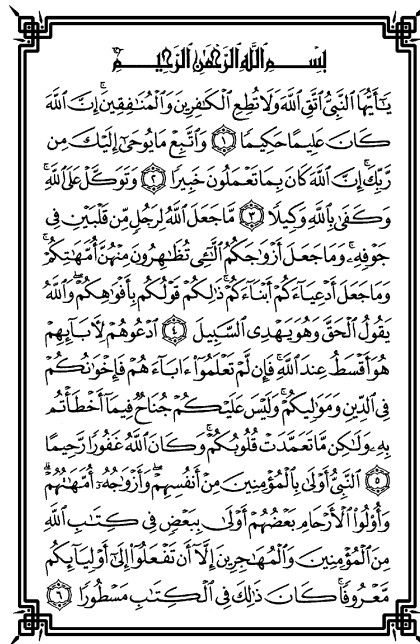 بِسْمِ ٱللَّهِ ٱلرَّحْمَٰنِ ٱلرَّحِيمِ
يَٰٓأَيُّهَا ٱلنَّبِىُّ ٱتَّقِ ٱللَّهَ وَلَا تُطِعِ ٱلْكَٰفِرِينَ وَٱلْمُنَٰفِقِينَ ۗ إِنَّ ٱللَّهَ
كَانَ عَلِيمًا حَكِيمًا ١ وَٱتَّبِعْ مَا يُوحَىٰٓ إِلَيْكَ مِن
رَّبِّكَ ۚ إِنَّ ٱللَّهَ كَانَ بِمَا تَعْمَلُونَ خَبِيرًا ٢ وَتَوَكَّلْ عَلَى ٱللَّهِ ۚ
وَكَفَىٰ بِٱللَّهِ وَكِيلًا ٣ مَّا جَعَلَ ٱللَّهُ لِرَجُلٍ مِّن قَلْبَيْنِ فِى
جَوْفِهِۦ ۚ وَمَا جَعَلَ أَزْوَٰجَكُمُ ٱلَّٰٓـِٔى تُظَٰهِرُونَ مِنْهُنَّ أُمَّهَٰتِكُمْ ۚ
وَمَا جَعَلَ أَدْعِيَآءَكُمْ أَبْنَآءَكُمْ ۚ ذَٰلِكُمْ قَوْلُكُم بِأَفْوَٰهِكُمْ ۖ وَٱللَّهُ
يَقُولُ ٱلْحَقَّ وَهُوَ يَهْدِى ٱلسَّبِيلَ ٤ ٱدْعُوهُمْ لِءَابَآئِهِمْ
هُوَ أَقْسَطُ عِندَ ٱللَّهِ ۚ فَإِن لَّمْ تَعْلَمُوٓا۟ ءَابَآءَهُمْ فَإِخْوَٰنُكُمْ
فِى ٱلدِّينِ وَمَوَٰلِيكُمْ ۚ وَلَيْسَ عَلَيْكُمْ جُنَاحٌ فِيمَآ أَخْطَأْتُم
بِهِۦ وَلَٰكِن مَّا تَعَمَّدَتْ قُلُوبُكُمْ ۚ وَكَانَ ٱللَّهُ غَفُورًا رَّحِيمًا
٥ ٱلنَّبِىُّ أَوْلَىٰ بِٱلْمُؤْمِنِينَ مِنْ أَنفُسِهِمْ ۖ وَأَزْوَٰجُهُۥٓ أُمَّهَٰتُهُمْ ۗ
وَأُو۟لُوا۟ ٱلْأَرْحَامِ بَعْضُهُمْ أَوْلَىٰ بِبَعْضٍ فِى كِتَٰبِ ٱللَّهِ
مِنَ ٱلْمُؤْمِنِينَ وَٱلْمُهَٰجِرِينَ إِلَّآ أَن تَفْعَلُوٓا۟ إِلَىٰٓ أَوْلِيَآئِكُم
مَّعْرُوفًا ۚ كَانَ ذَٰلِكَ فِى ٱلْكِتَٰبِ مَسْطُورًا ٦